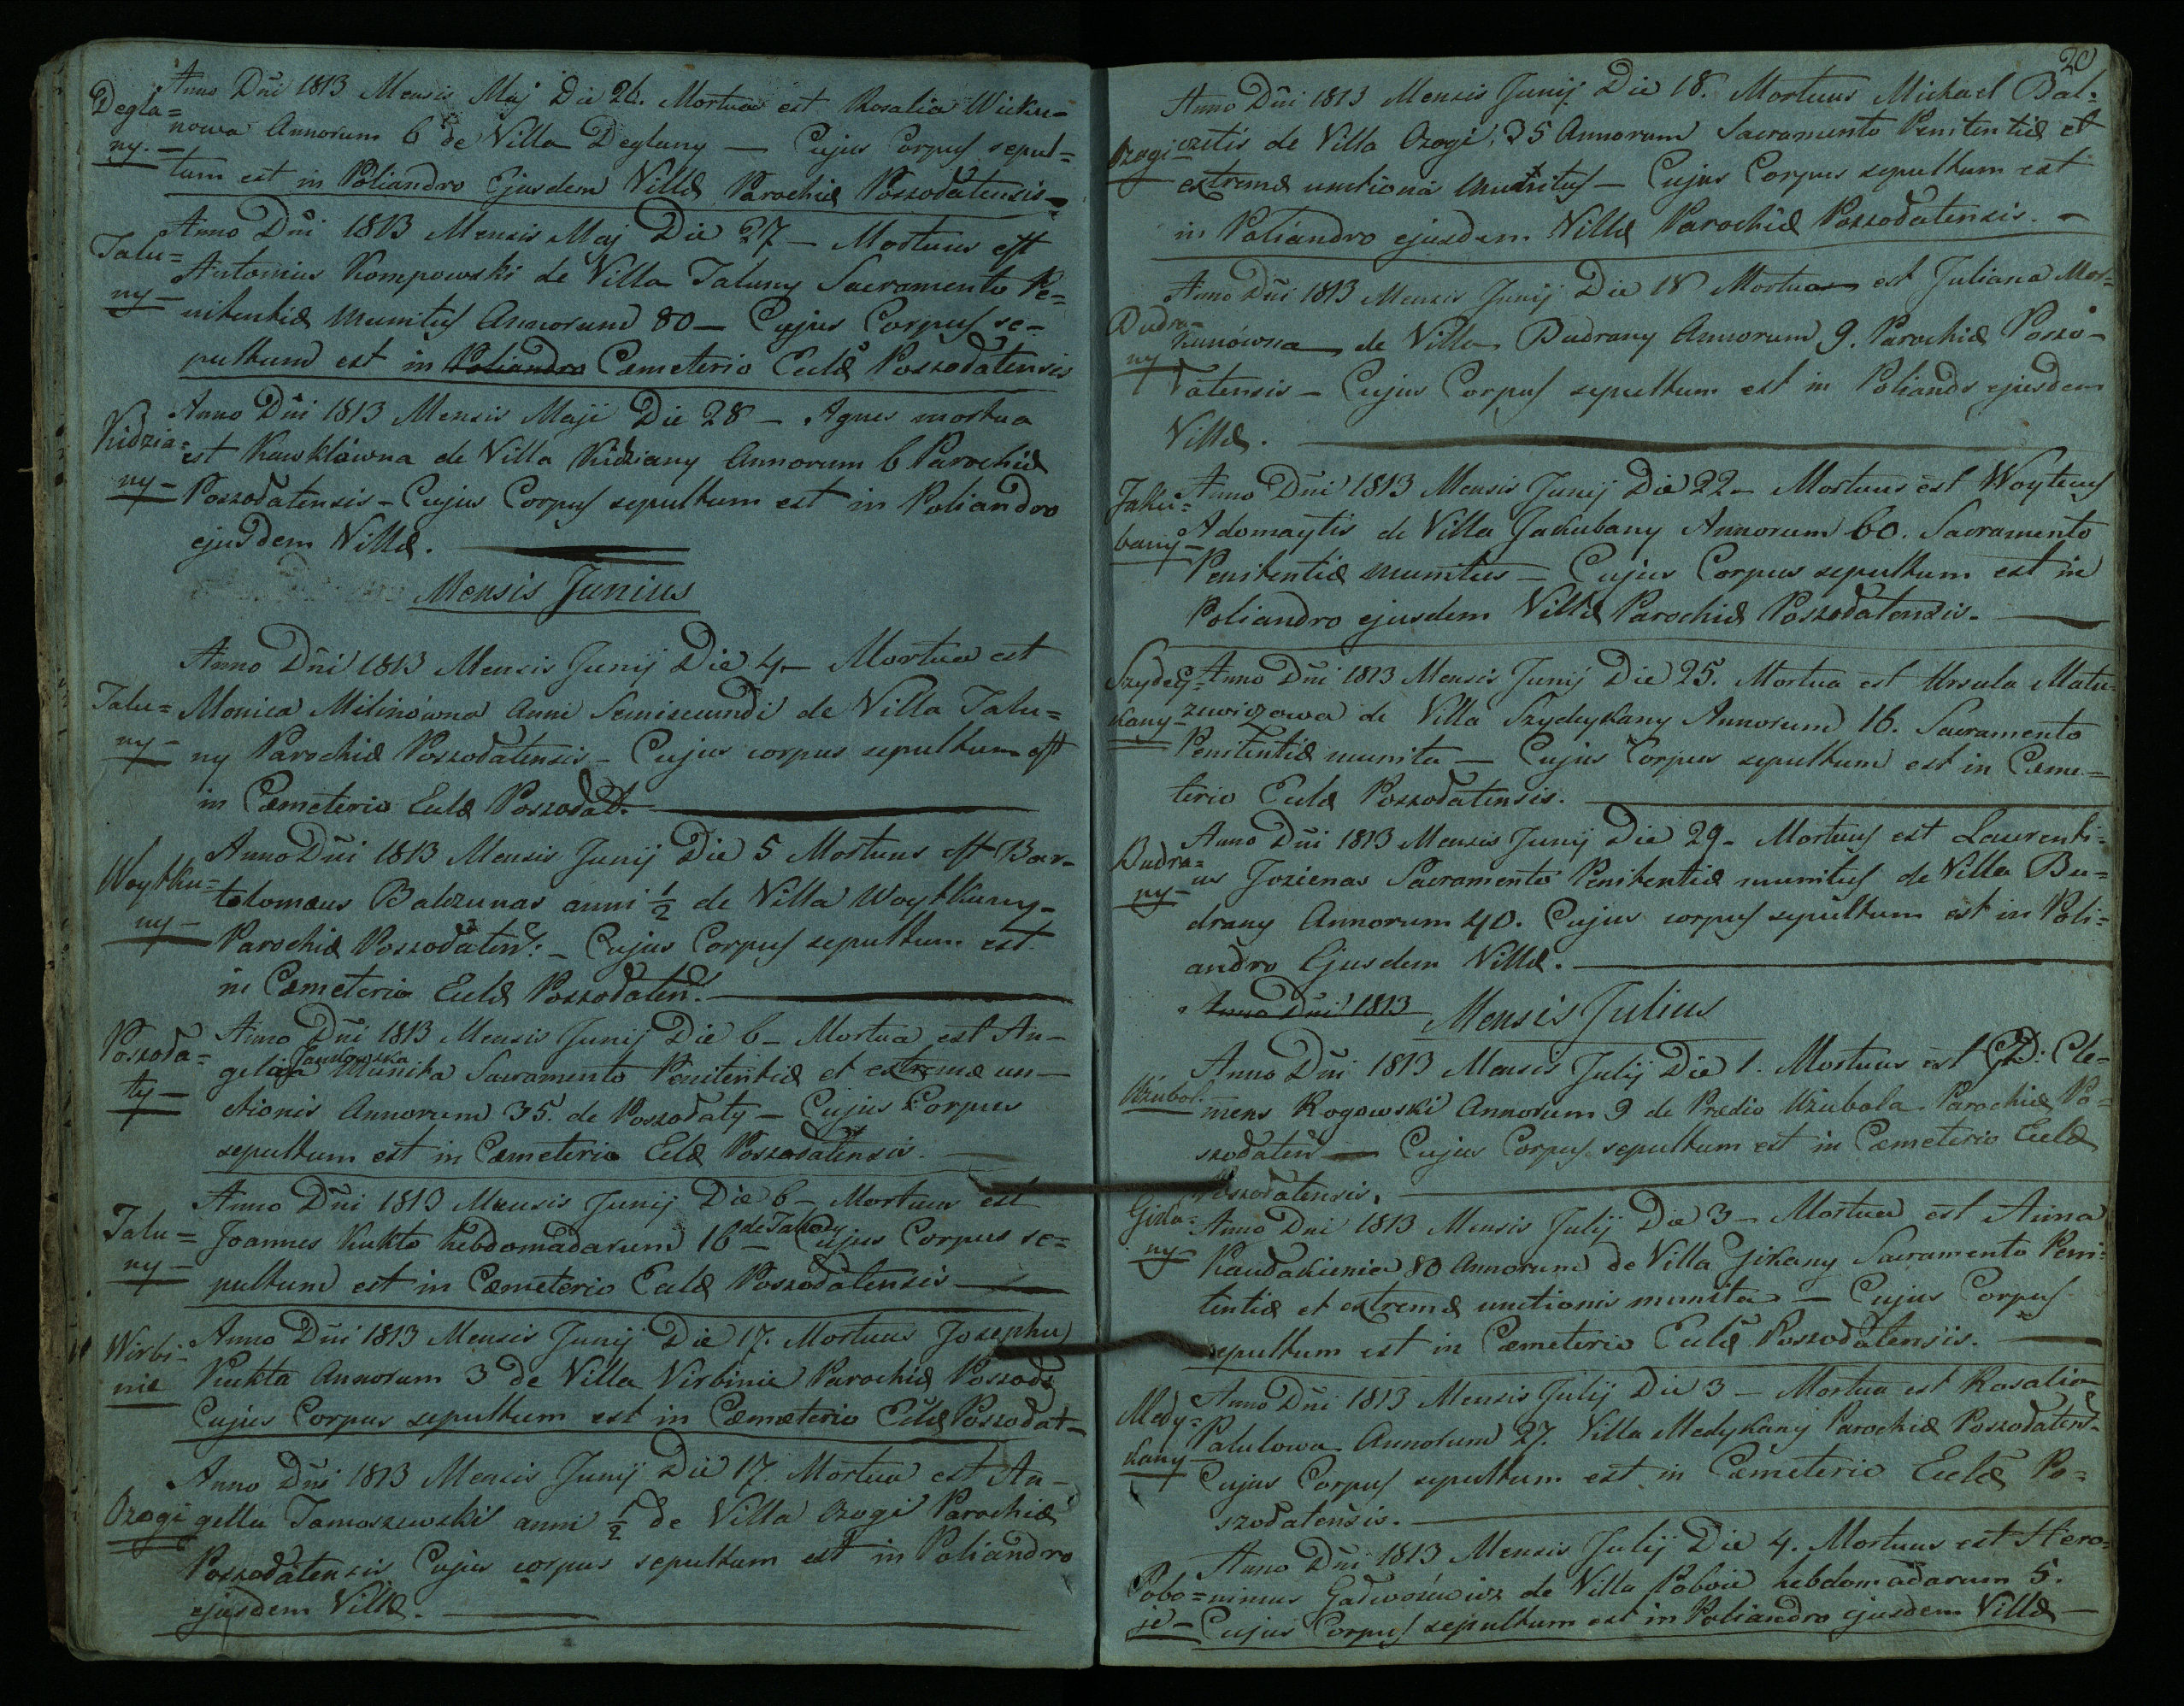 Degla=
ny.-
Anno Dñi 1813 Mensis Maj Die 26. Mortua est Rosalia Wicku=
nowa Annorum 6 de Villa Deglany — Cujus Corpus sepul=
tum est in Poliandro Ejusdem Villæ Parochiæ Poszodatensis -
Talu=
ny-
Anno Dñi 1813 Mensis Maj Die 27 — Mortuus est
Antonius Kompowski de Villa Taluny Sacramento Pe=
nitentiæ munitus Annorum 80 — Cujus Corpus se=
pultum est in Poliandro Cæmeterio Eclæ Poszodatensis
Kidzia=
ny-
Anno Dñi 1813 Mensis Maji Die 28 — Agnes mortua
est Kawklówna de Villa Kidziany Annorum 6 Parochiæ
Poszodatensis - Cujus Corpus sepultum est in Poliandro
ejusdem Villæ.
Mensis Junius
Talu=
ny-
Anno Dñi 1813 Mensis Junij Die 4 — Mortua est
Monica Milinówna Anni Semisecundi de Villa Talu=
ny Parochiæ Poszodatensis — Cujus corpus sepultum est
in Cæmeterio Eclæ Poszodat.
Woytku=
ny-
Anno Dñi 1813 Mensis Junij Die 5 Mortuus est Bar-
tolomæus Balczunas anni ½ de Villa Woytkuny-
Parochiæ Poszodaten: - Cujus Corpus sepultum est
in Cæmeterio Eclæ Poszodaten.
Poszoda=
ty-
Anno Dñi 1813 Mensis Junij Die 6 — Mortua est An-
Jannowska
gelica Munita Sacramento Penitentiæ et extremæ un-
ctionis Annorum 35. de Poszodaty — Cujus Corpus
sepultum est in Cæmeterio Eclæ Poszodatensis.
Talu=
ny-
Anno Dñi 1813 Mensis Junij Die 6 — Mortuus est
de Taluny
Joannes Kukto hebdomadarum 16 — Cujus Corpus se=
pultum est in Cæmeterio Eclæ Poszodatensis
Wirbi-
nie
Anno Dñi 1813 Mensis Junij Die 17. Mortuus Josephus
Kukta Annorum 3 de Villa Virbinie Parochiæ Poszod
Cujus Corpus sepultum est in Cæmeterio Eclæ Poszodat-
Ozogi
Anno Dñi 1813 Mensis Junij Die 17. Mortua est An-
gella Tamoszewski anni ½ de Villa Ozogi Parochiæ
Poszodatensis Cujus corpus sepultum est in Poliandro
ejusdem Villæ.
20
Ozogi
Anno Dñi 1813 Mensis Junij Die 18. Mortuus Michael Bal=
czitis de Villa Ozogi, 35 Annorum Sacramento Penitentiæ et
extremæ unctionis munitus — Cujus Corpus sepultum est
in Poliandro ejusdem Villæ Parochiæ Poszodatensis. -
Budra-
ny
Anno Dñi 1813 Mensis Junij Die 18 Mortua est Juliana Mor=
kunówna de Villa Budrany Annorum 9. Parochiæ Poszo-
datensis — Cujus Corpus sepultum est in Poliandr ejusdem
Villæ.
Jaku=
bany-
Anno Dñi 1813 Mensis Junij Die 22 — Mortuus est Woytius
Adomaytis de Villa Jakubany Annorum 60. Sacramento
Penitentiæ munitus — Cujus Corpus sepultum est in
Poliandro ejusdem Villæ Parochiæ Poszodatensis.
Szydey=
kany-
Anno Dñi 1813 Mensis Junij Die 25. Mortua est Ursula Matu=
zewiczowa de Villa Szydeykany Annorum 16. Sacramento
Penitentiæ munita — Cujus Corpus sepultum est in Cæme=
terio Eclæ Poszodatensis.
Budra=
ny-
Anno Dñi 1813 Mensis Junij Die 29 - Mortuus est Laurenti=
us Jozienas Sacramento Penitentiæ munitus de Villa Bu=
drany Annorum 40. Cujus corpus sepultum est in Poli=
andro Ejusdem Villæ.
Anno Dñi 1813 Mensis Julius
Użubol.
Anno Dñi 1813 Mensis Julij Die 1. Mortuus est GD: Cle=
mens Rogowski Annorum 9 de Prædio Użubola Parochiæ Po=
szodaten — Cujus Corpus sepultum est in Cæmeterio Eclæ
Poszodatensis.
Gizka=
ny-
Anno Dñi 1813 Mensis Julij Die 3 — Mortua est Anna
Kaudakienia 80 Annorum de Villa Gikany Sacramento Peni=
tentiæ et extremæ unctionis munita — Cujus Corpus
sepultum est in Cæmeterio Eclæ Poszodatensis.
Medy=
kany-
Anno Dñi 1813 Mensis Julij Die 3 — Mortua est Rosalia
Patulowa Annorum 27. Villa Medykany Parochiæ Poszodaten-
Cujus Corpus sepultum est in Cæmeterio Eclæ Po=
szodatensis.
Pobo=
je-
Anno Dñi 1813 Mensis Julij Die 4. Mortuus est Hiero=
nimus Gadwoniewicz de Villa Poboie hebdomadarum 5.
Cujus Corpus sepultum est in Poliandro ejusdem Villæ